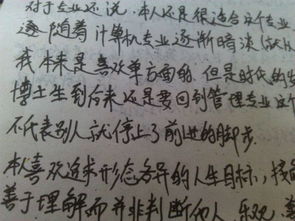 对于专业还说，本人还是很适合这个专业
逐随着计算机专业逐渐暗淡
我本来是喜欢单方面的，但是时代的
博士生到后来还是要回到管理专业这个
不代表别人就停上了前进的脚步.
本人喜欢追求形态各异的人生目标，接
善于理解而并非判断他人，乐观，善